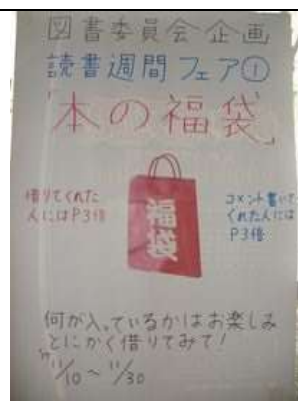 図書委員会企画
読書週間フェア①
「本の福袋」
借りてくれた
人にはP3倍
福袋
コメント書いて
くれた人には
P3倍
何が入っているかはお楽しみ
とにかく借りてみて！
11/10～11/30